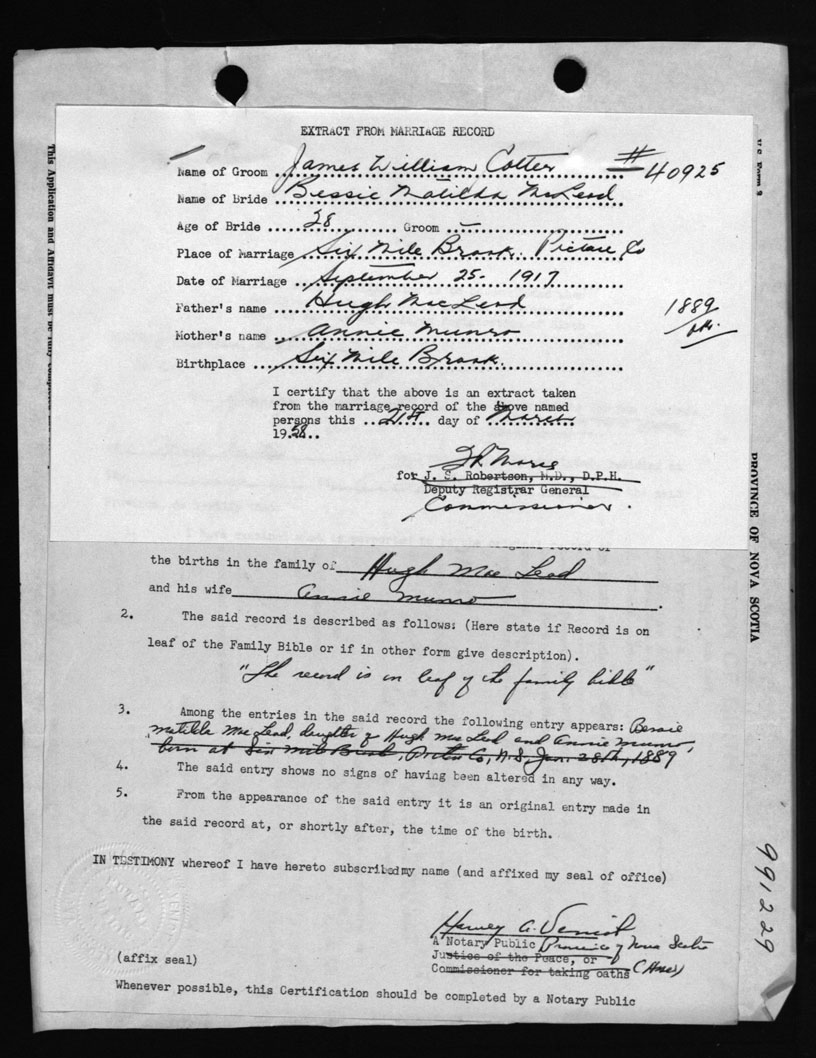 EXTRACT FROM MARRIAGE RECORD
Name of Groom James William Cotter #40925
Name of Bride Bessie Matilda McLeod
Age of Bride 28 Groom –
Place of Marriage Six Mile Brook. Pictou Co
Date of Marriage September 25- 1917
Father's name Hugh MacLeod 1889
Mother's name Annie Munro
Birthplace Six Mile Brook.
I certify that the above is an extract taken
from the marriage record of the above named
persons this 21st day of March
1958
for J. S. Robertson, M.D., D.P.H.
Deputy Registrar General
Commissioner.
the births in the family of Hugh Mac Leod
and his wife Annie Munro.
2. The said record is described as follows: (Here state if Record is on
leaf of the Family Bible or if in other form give description).
"The record is on leaf of the family bible"
3. Among the entries in the said record the following entry appears: Bessie
Matilda Mac Leod, daughter of Hugh Mac Leod and Annie Munro,
born at Six Mile Brook, Pictou Co, N.S. Jan. 28th, 1889
4. The said entry shows no signs of having been altered in any way.
5. From the appearance of the said entry it is an original entry made in
the said record at, or shortly after, the time of the birth.
IN TESTIMONY whereof I have hereto subscribed my name (and affixed my seal of office)
Harvey A. Veniot
A Notary Public Province of Nova Scotia
Justice of the Peace, or
(affix seal)
Commissioner for taking oaths
Whenever possible, this Certification should be completed by a Notary Public
This Application and Affidavit must be fully
PROVINCE OF NOVA SCOTIA
991229